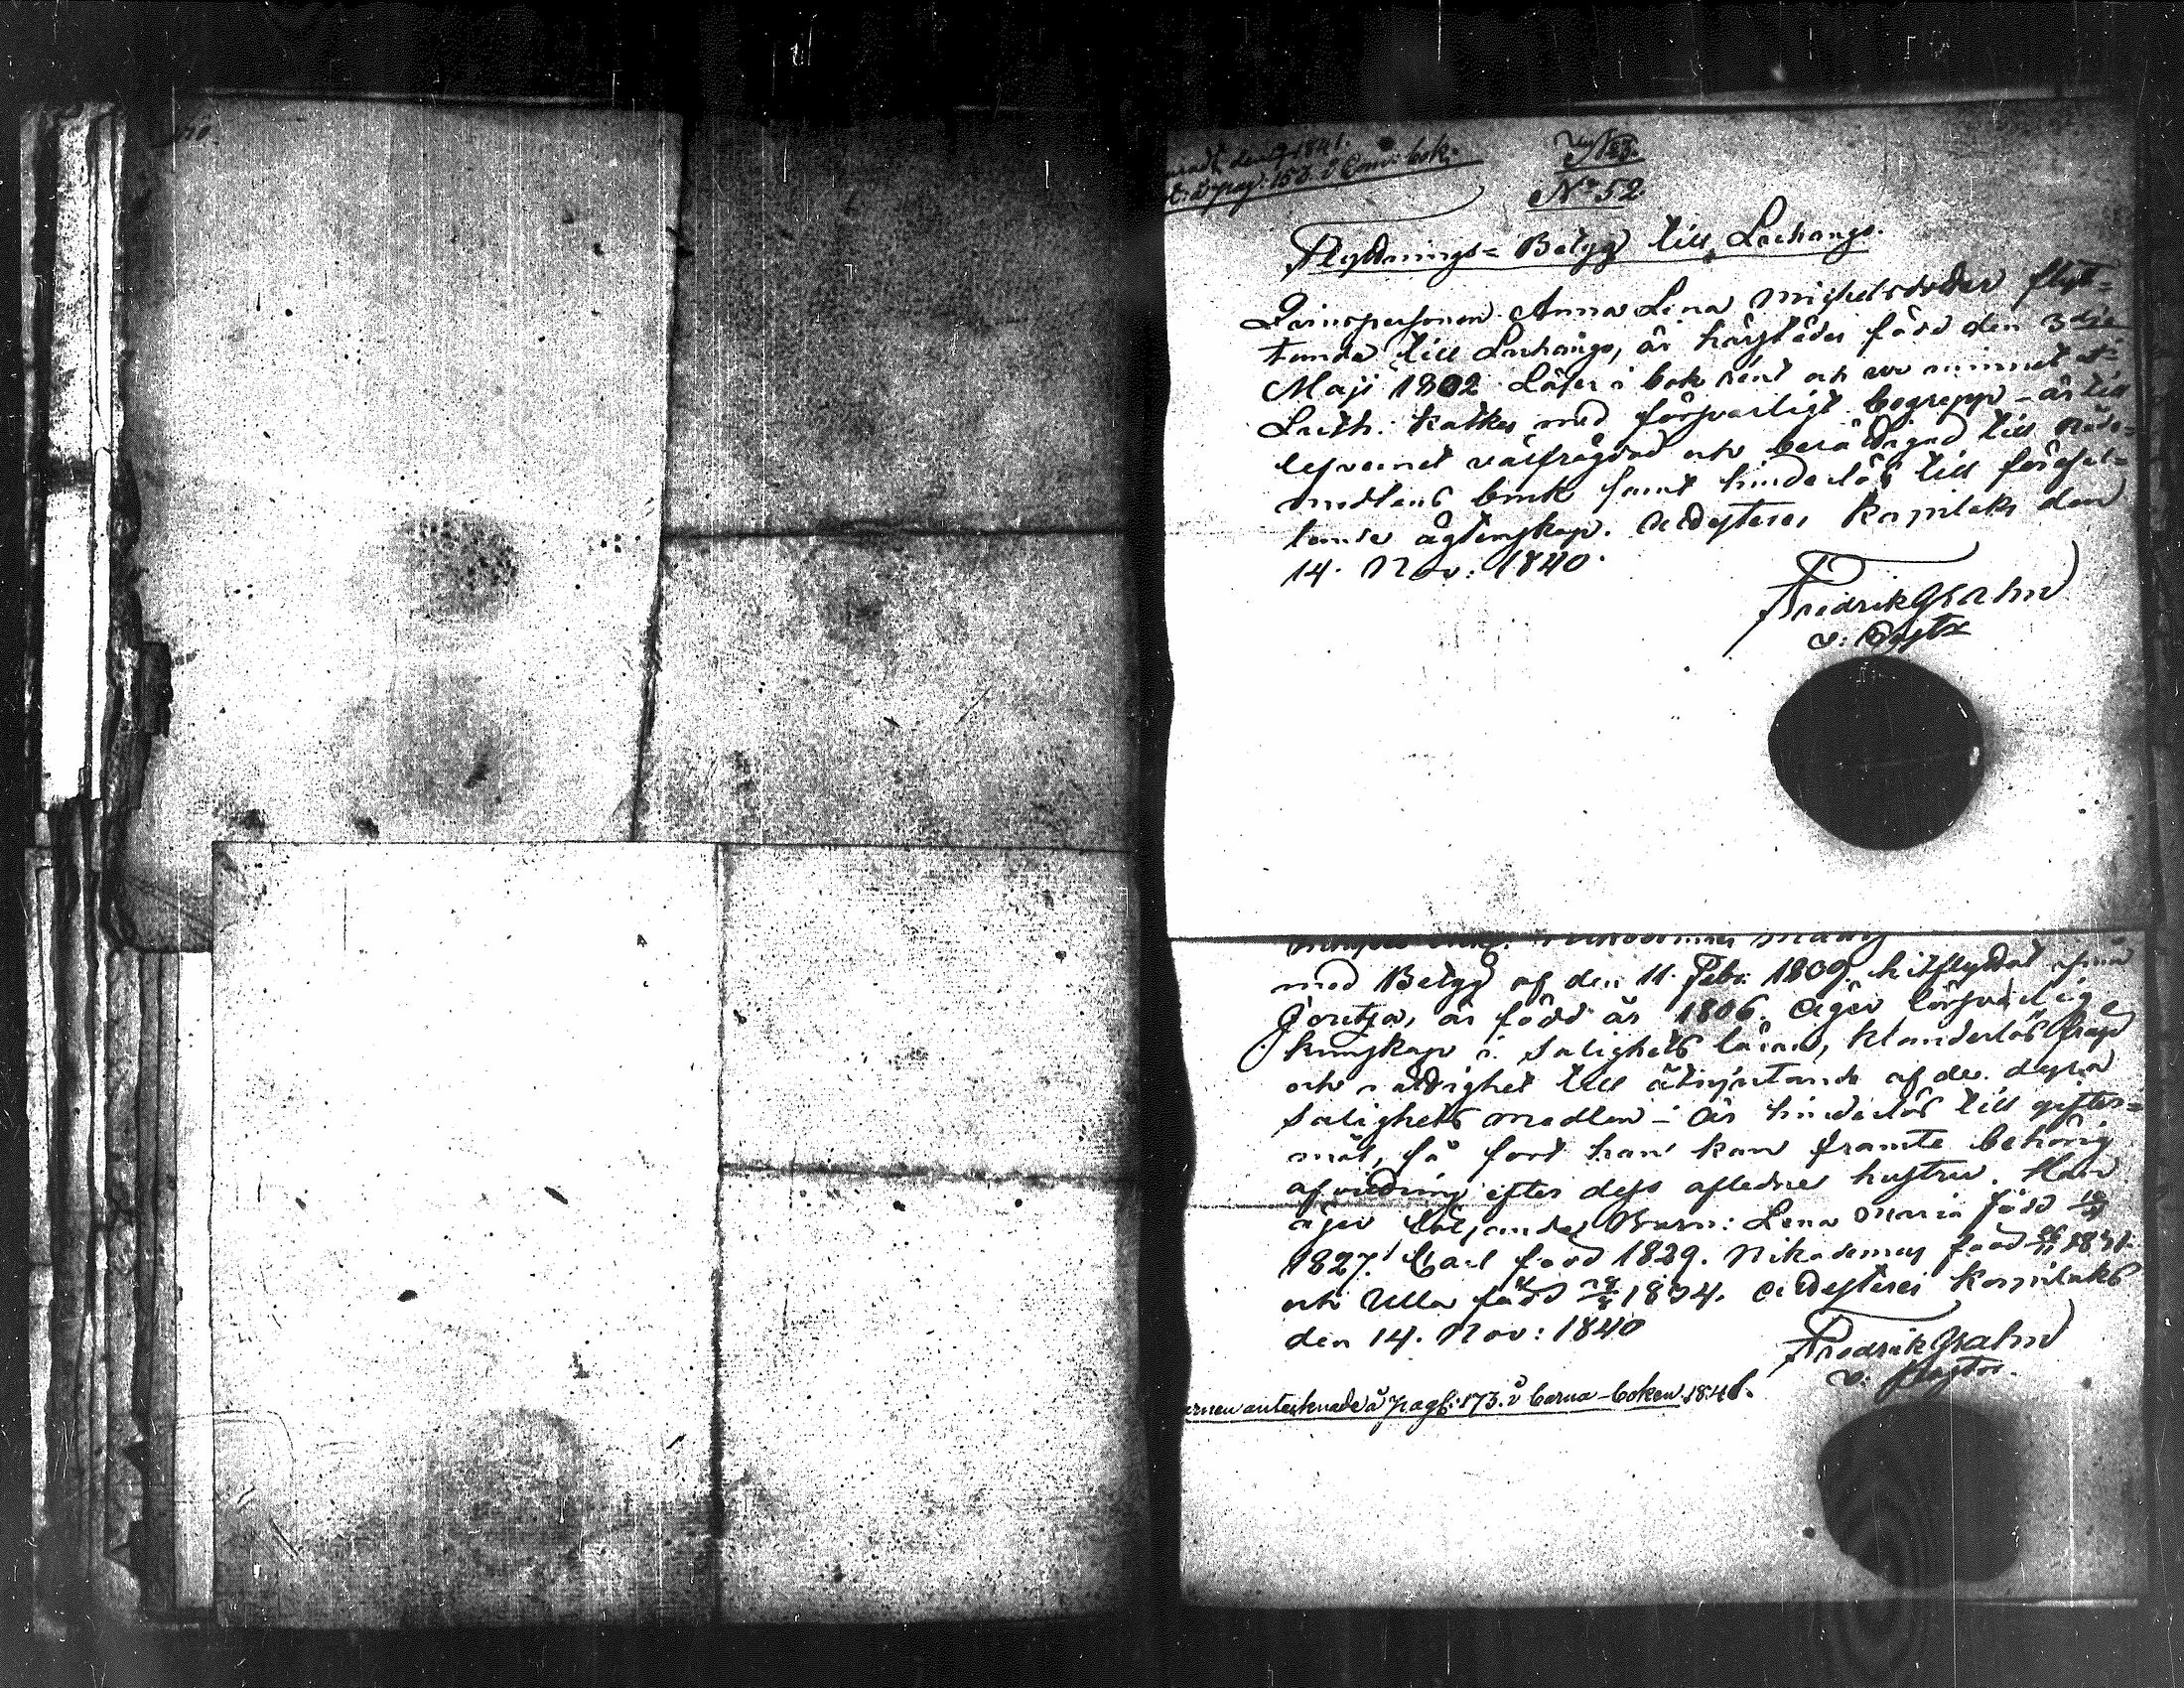 den 1841.
å pag: 153. i Com: bok.
No 52
Flyttnings= Betyg till Lochango.
Qvinspersonen Anna Lena Michelsdotter flyt=
tande till Lochango, är härstädes född den 3die
Maji 1802 Läser i bok rent och ur minnet
Luth. katkes med försvarligt begrepp - är till
lefvernet välfrägdad och berättigad till nåde=
medlens bruk samt hinderlös till förefal=
lande ägtenskap. Attesterar Kopilaks den
14. Nov: 1840.
Fredrik Grahn
v: Pastor
med Betyg af den 11. Febr. 1809. hitflyttat ifrån
Joutsa, är född år 1806. Äger försvarlig
kunskap i Salighets läran, klanderlös frägd
och rättighet till åtnjutande af de dyra
Salighets medlen - är hinderlös till gifter=
mål, så fort han kan framte behörig
afvittring efter dess aflidne hustru. Han
äger följande Barn: Lena Maria född
1827. Carl född 1829. Nikodemus född 1831.
och Ulla född 1834. Attesterar Kopilaks
den 14. Nov: 1840
Fredrik Grahn
v. Pastor.
antecknade å pag: 173. i barna-boken 1841.